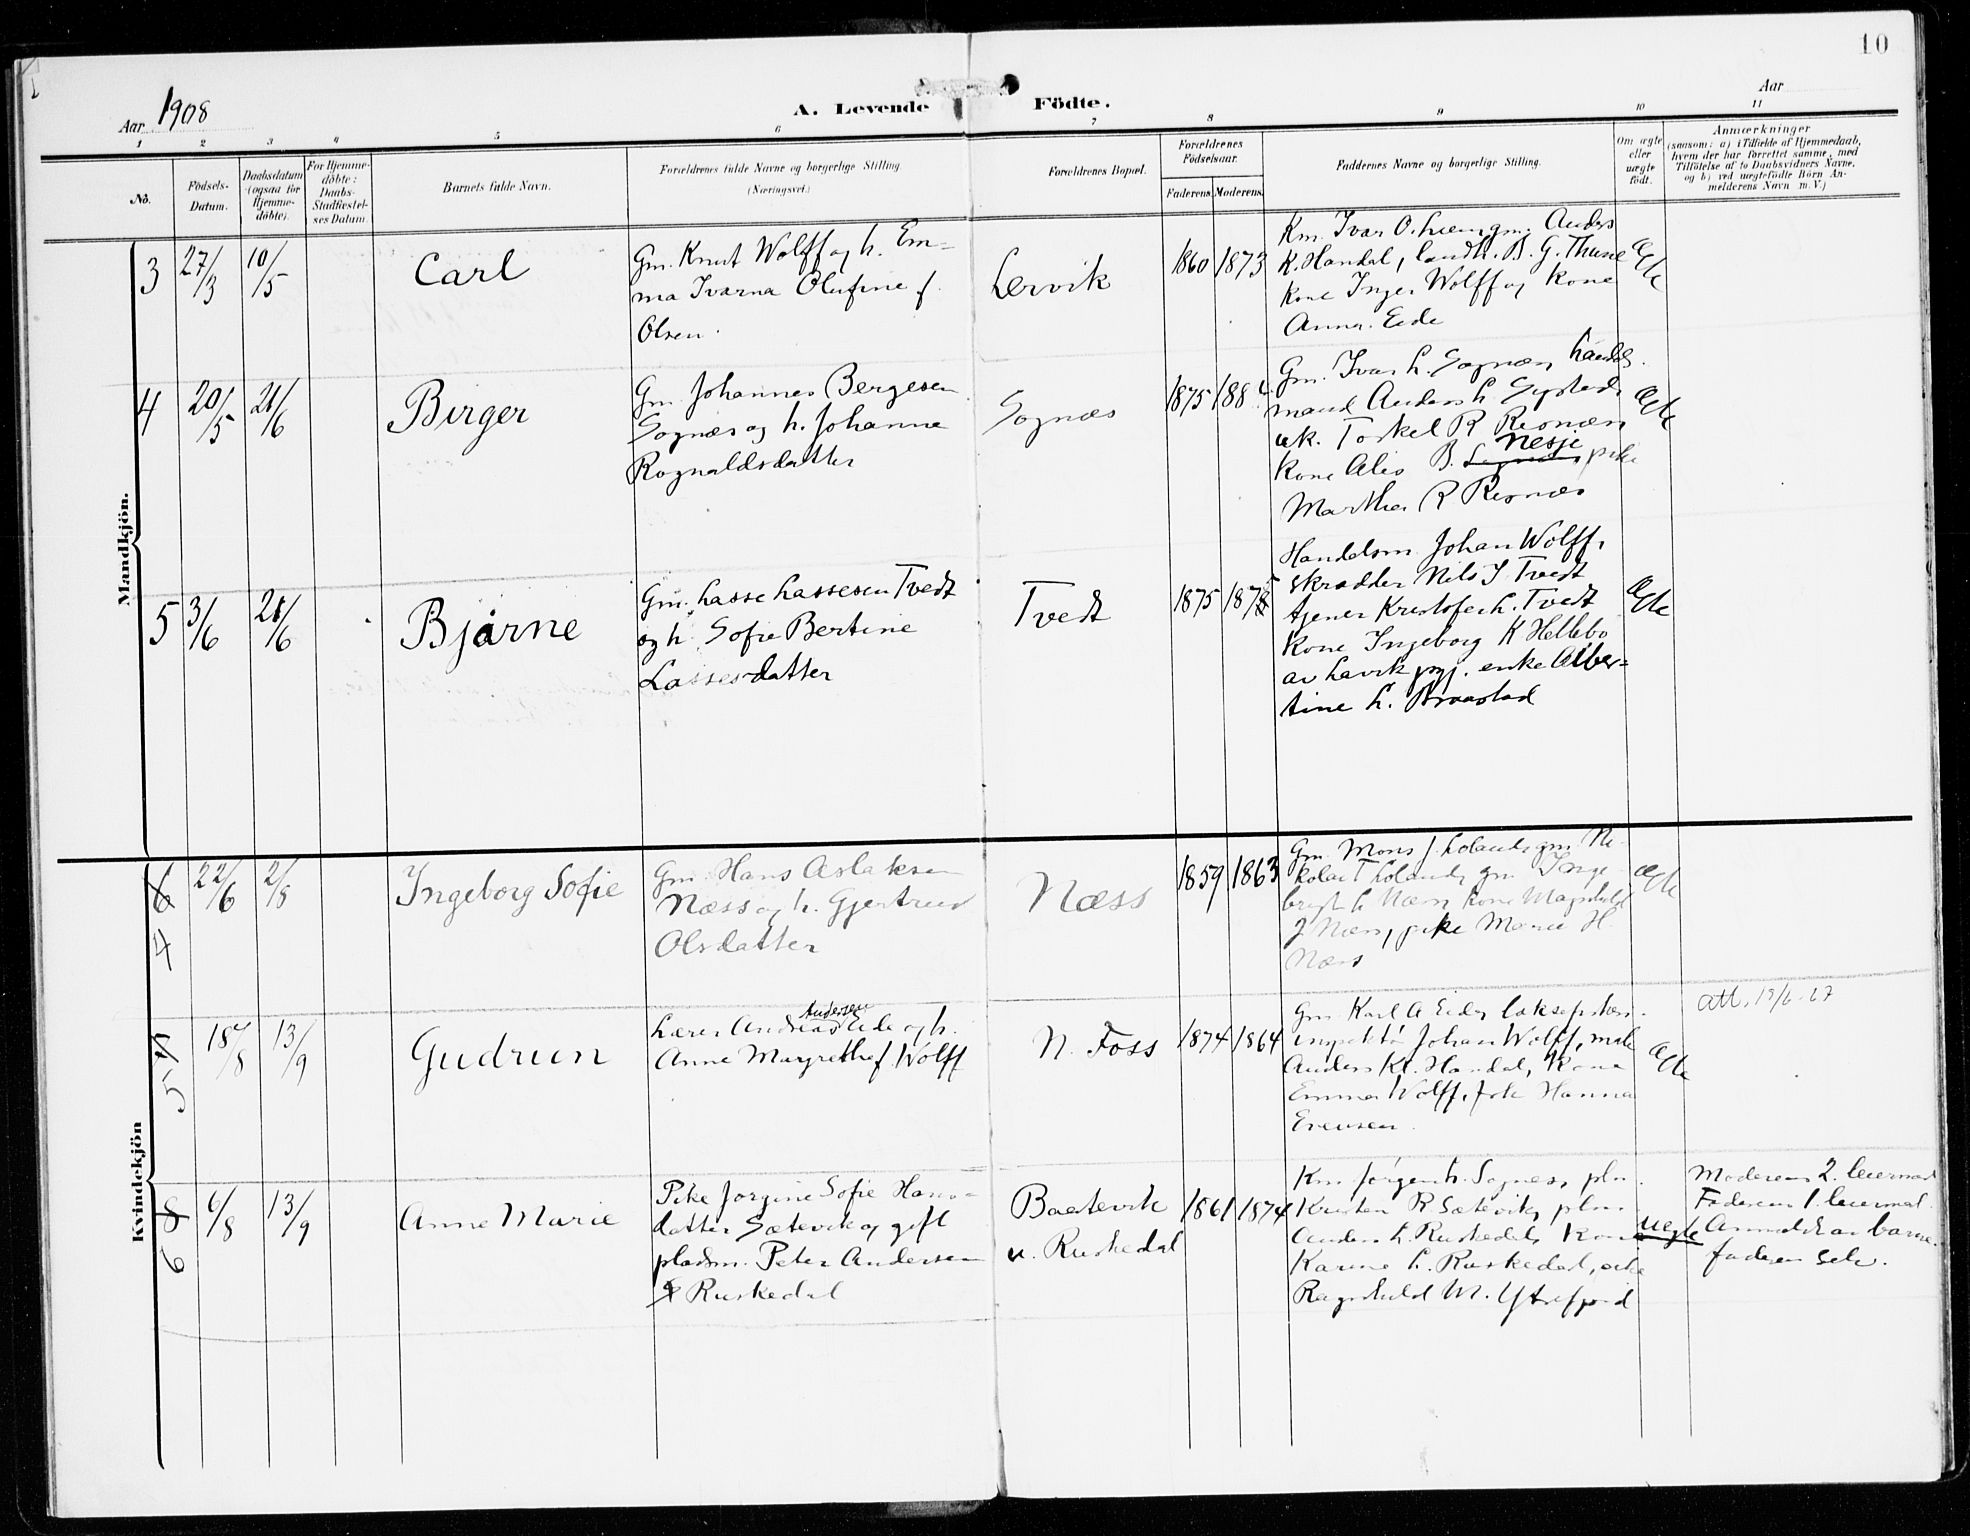 10
Aar 1908
A. Levende Födte.
Aar
1 2 3 4 5 6 7 8 9 10 11
No.
Födsels-Datum.
Daabsdatum (ogsaa for Hjemme-döbte).
For Hjemme-döbte: Daabs-Stadfæstel-ses Datum.
Barnets fulde Navn.
Forældrenes fulde Navne og borgerlige Stilling
(Næringsvei.)
Forældrenes Bopæl.
Forældrenes Födselsaar.
Faderens. Moderens.
Faddernes Navne og borgerlige Stilling.
Om ægte eller uægte født.
Anmærkninger
(saasom: a) i Tilfælde af Hjemmedaab,
hvem der har forrettet samme, med
Tilföielse af to Daabsvidners Navne,
og b) ved uægtefödte Börn An-
melderens Navn m. V.)
Mandkjön.
3 27/3 10/5 Carl
Gm. Knut Wolff og h. Em=
ma Ivarna Olufine f.
Olsen.
Lervik
1860 1873
Km. Ivar O. gm. Anders
K. Handal, landh. B. G. Thune
kone Inger Wolff og kone
Anna Eide
ægte
4 20/5 21/6 Birger
Gm. Johannes Bergesen
Sognæs og h. Johanne
Rognaldsdatter
Sognæs
1875 188
Gm. Ivar L. Sognæs, handels
mand Anders L.
uk. Torkel R Risnæs,
kone Alis B. Nesje pike
Martha R Risnæs
ægte
5 3/6 21/6 Bjarne
Gm. Lasse Lassesen Tvedt
og h. Sofie Bertine
Lassesdatter
Tvedt
1875 1875
Handelsm Johan Wolff,
Skrædder Nils J Tvedt
tjener Kristofer L. Tvedt
kone Ingeborg K Hellebö
av Lavik pgj. enke Alber=
tine L. Braastad
ægte
Kvindekjön
6 4 22/6 2/8 Ingeborg Sofie
Gm. Hans Aslaksen
Næss og h. Gjertrud
Olsdatter
Næss
1859 1863
Gm. Mons J. Loland, gm. Ni-
kolai T Loland, gm Inge
brigt L Næss, kone Magnhild
J Næss, pike Marie H.
Næss
ægte
5 18/8 13/9 Gudrun
Andersen
Lærer Andreas Eide og h.
Anne Margrethe f. Wolff
N. Foss
1874 1864
Gm. Karl A Eide,
inspektö Johan Wolff,
Anders Kl. Handal, Kone
Emma Wolff, frk Hanna
Evensen.
ægte
att.
8 6 6/8 13/9 Anne Marie
Pike Jorgine Sofie Hans=
datter Sætevik og gift
pladsm. Peter Andersen
Ruskedal
Baatevik
u. Ruskedal
1861 1874
Km. Jörgen L. Sognes, plm.
Kristen R. Sætevik, plm.
Anders L. Ruskedal, kone
Karine L. Ruskedal, pike
Ragnhild M. Ytrefjord
uegte
Moderens 2. leiermaal
Faderens 1. leiermal.
Anmeldt av barne-
faderen selv.